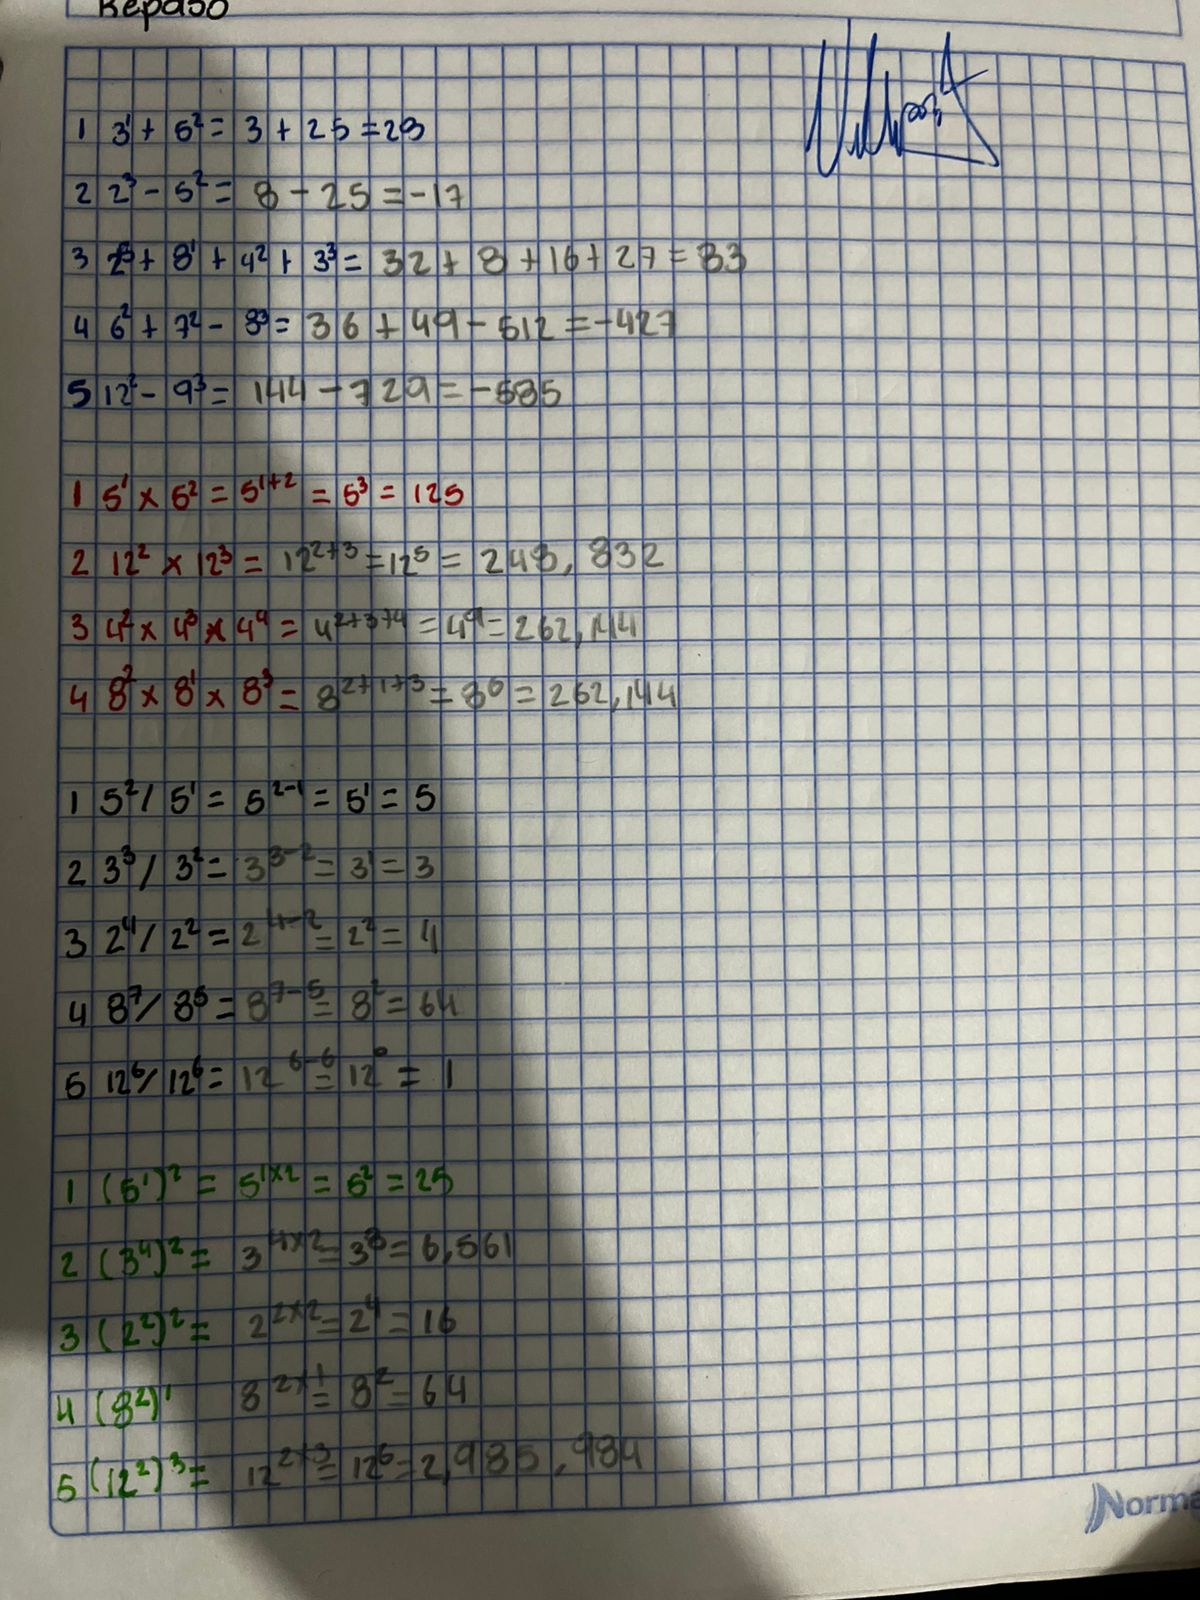 Repaso
1 3¹ + 5² = 3 + 25 = 28
2 2³ - 5² = 8 - 25 = -17
3 2⁵ + 8¹ + 4² + 3³ = 32 + 8 + 16 + 27 = 83
4 6² + 7² - 8³ = 36 + 49 - 512 = -427
5 12² - 9³ = 144 - 729 = -585
1 5¹ x 5² = 5¹⁺² = 5³ = 125
2 12² x 12³ = 12²⁺³ = 12⁵ = 248,832
3 4² x 4³ x 4⁴ = 4²⁺³⁺⁴ = 4⁹ = 262,144
4 8² x 8¹ x 8³ = 8²⁺¹⁺³ = 8⁶ = 262,144
1 5² / 5¹ = 5²⁻¹ = 5¹ = 5
2 3³ / 3² = 3³⁻² = 3¹ = 3
3 2⁴ / 2² = 2⁴⁻² = 2² = 4
4 8⁷ / 8⁵ = 8⁷⁻⁵ = 8² = 64
5 12⁶ / 12⁶ = 12⁶⁻⁶ = 12⁰ = 1
1 (5¹)² = 5¹ˣ² = 5² = 25
2 (3⁴)² = 3⁴ˣ² = 3⁸ = 6,561
3 (2²)² = 2²ˣ² = 2⁴ = 16
4 (8²)¹ 8²ˣ¹ = 8² = 64
5 (12²)³ = 12²ˣ³ = 12⁶ = 2,985,984
Norma